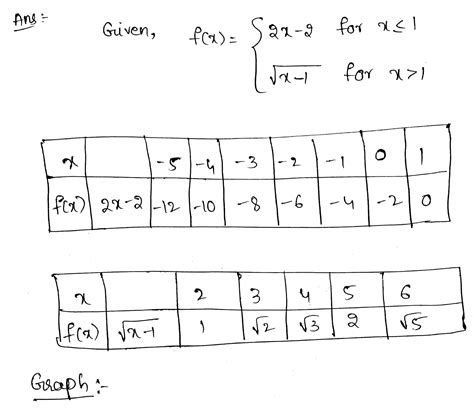 Ans :-
Given, f(x) = { 2x-2 for x ≤ 1
√x-1 for x > 1
x -5 -4 -3 -2 -1 0 1
f(x) 2x-2 -12 -10 -8 -6 -4 -2 0
x 2 3 4 5 6
f(x) √x-1 1 √2 √3 2 √5
Graph :-